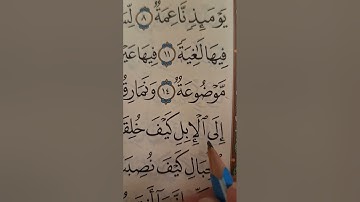 يَوْمَئِذٍ نَّاعِمَةٌ ٨ لِّسَ
فِيهَا لَٰغِيَةً ١١ فِيهَا عَيْ
مَّوْضُوعَةٌ ١٤ وَنَمَارِقُ
إِلَى ٱلْإِبِلِ كَيْفَ خُلِقَ
جِبَالِ كَيْفَ نُصِبَ
إِنَّمَآ أَنتَ